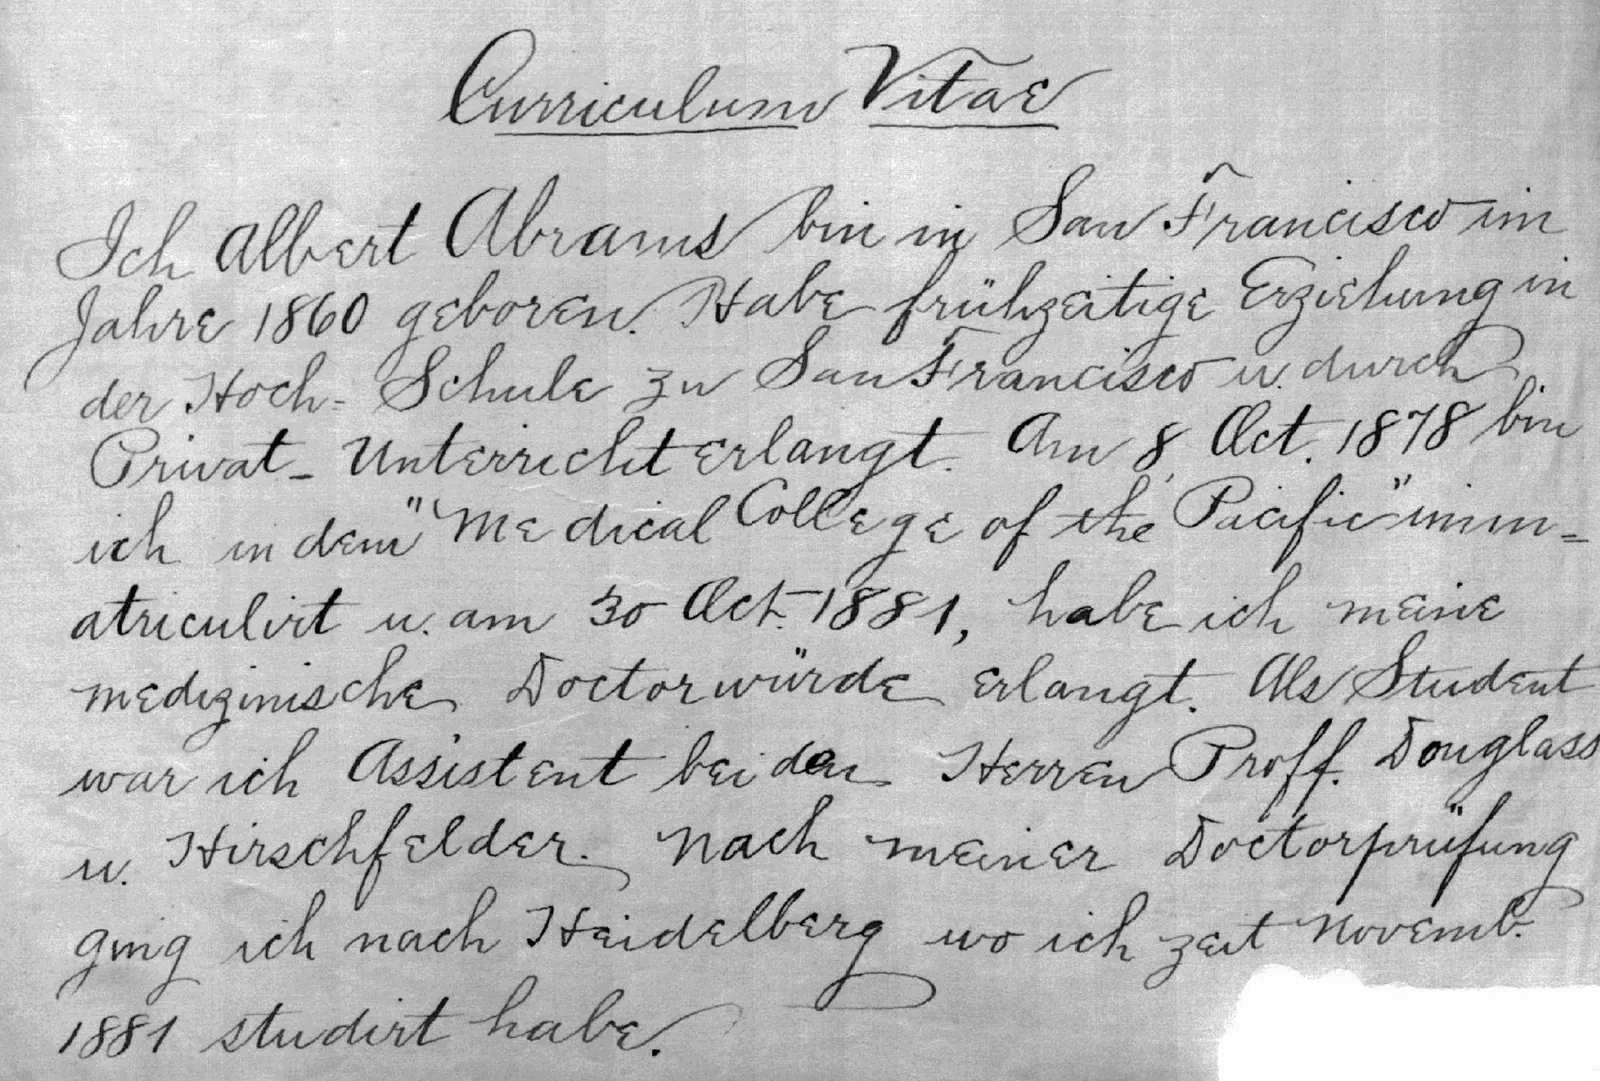 Curriculum Vitae
Ich Albert Abrams bin in San Francisco im
Jahre 1860 geboren. Habe frühzeitige Erziehung in
der Hoch-Schule zu San Francisco u. durch
Privat-Unterricht erlangt. Am 8. Oct. 1878 bin
ich in dem "Medical College of the Pacific" imm=
atriculirt u. am 30 Oct. 1881, habe ich meine
medizinische Doctorwürde erlangt. Als Student
war ich Assistent bei den Herren Proff. Douglass
u. Hirschfelder. Nach meiner Doctorprüfung
ging ich nach Heidelberg wo ich zeit Novemb.
1881 studirt habe.